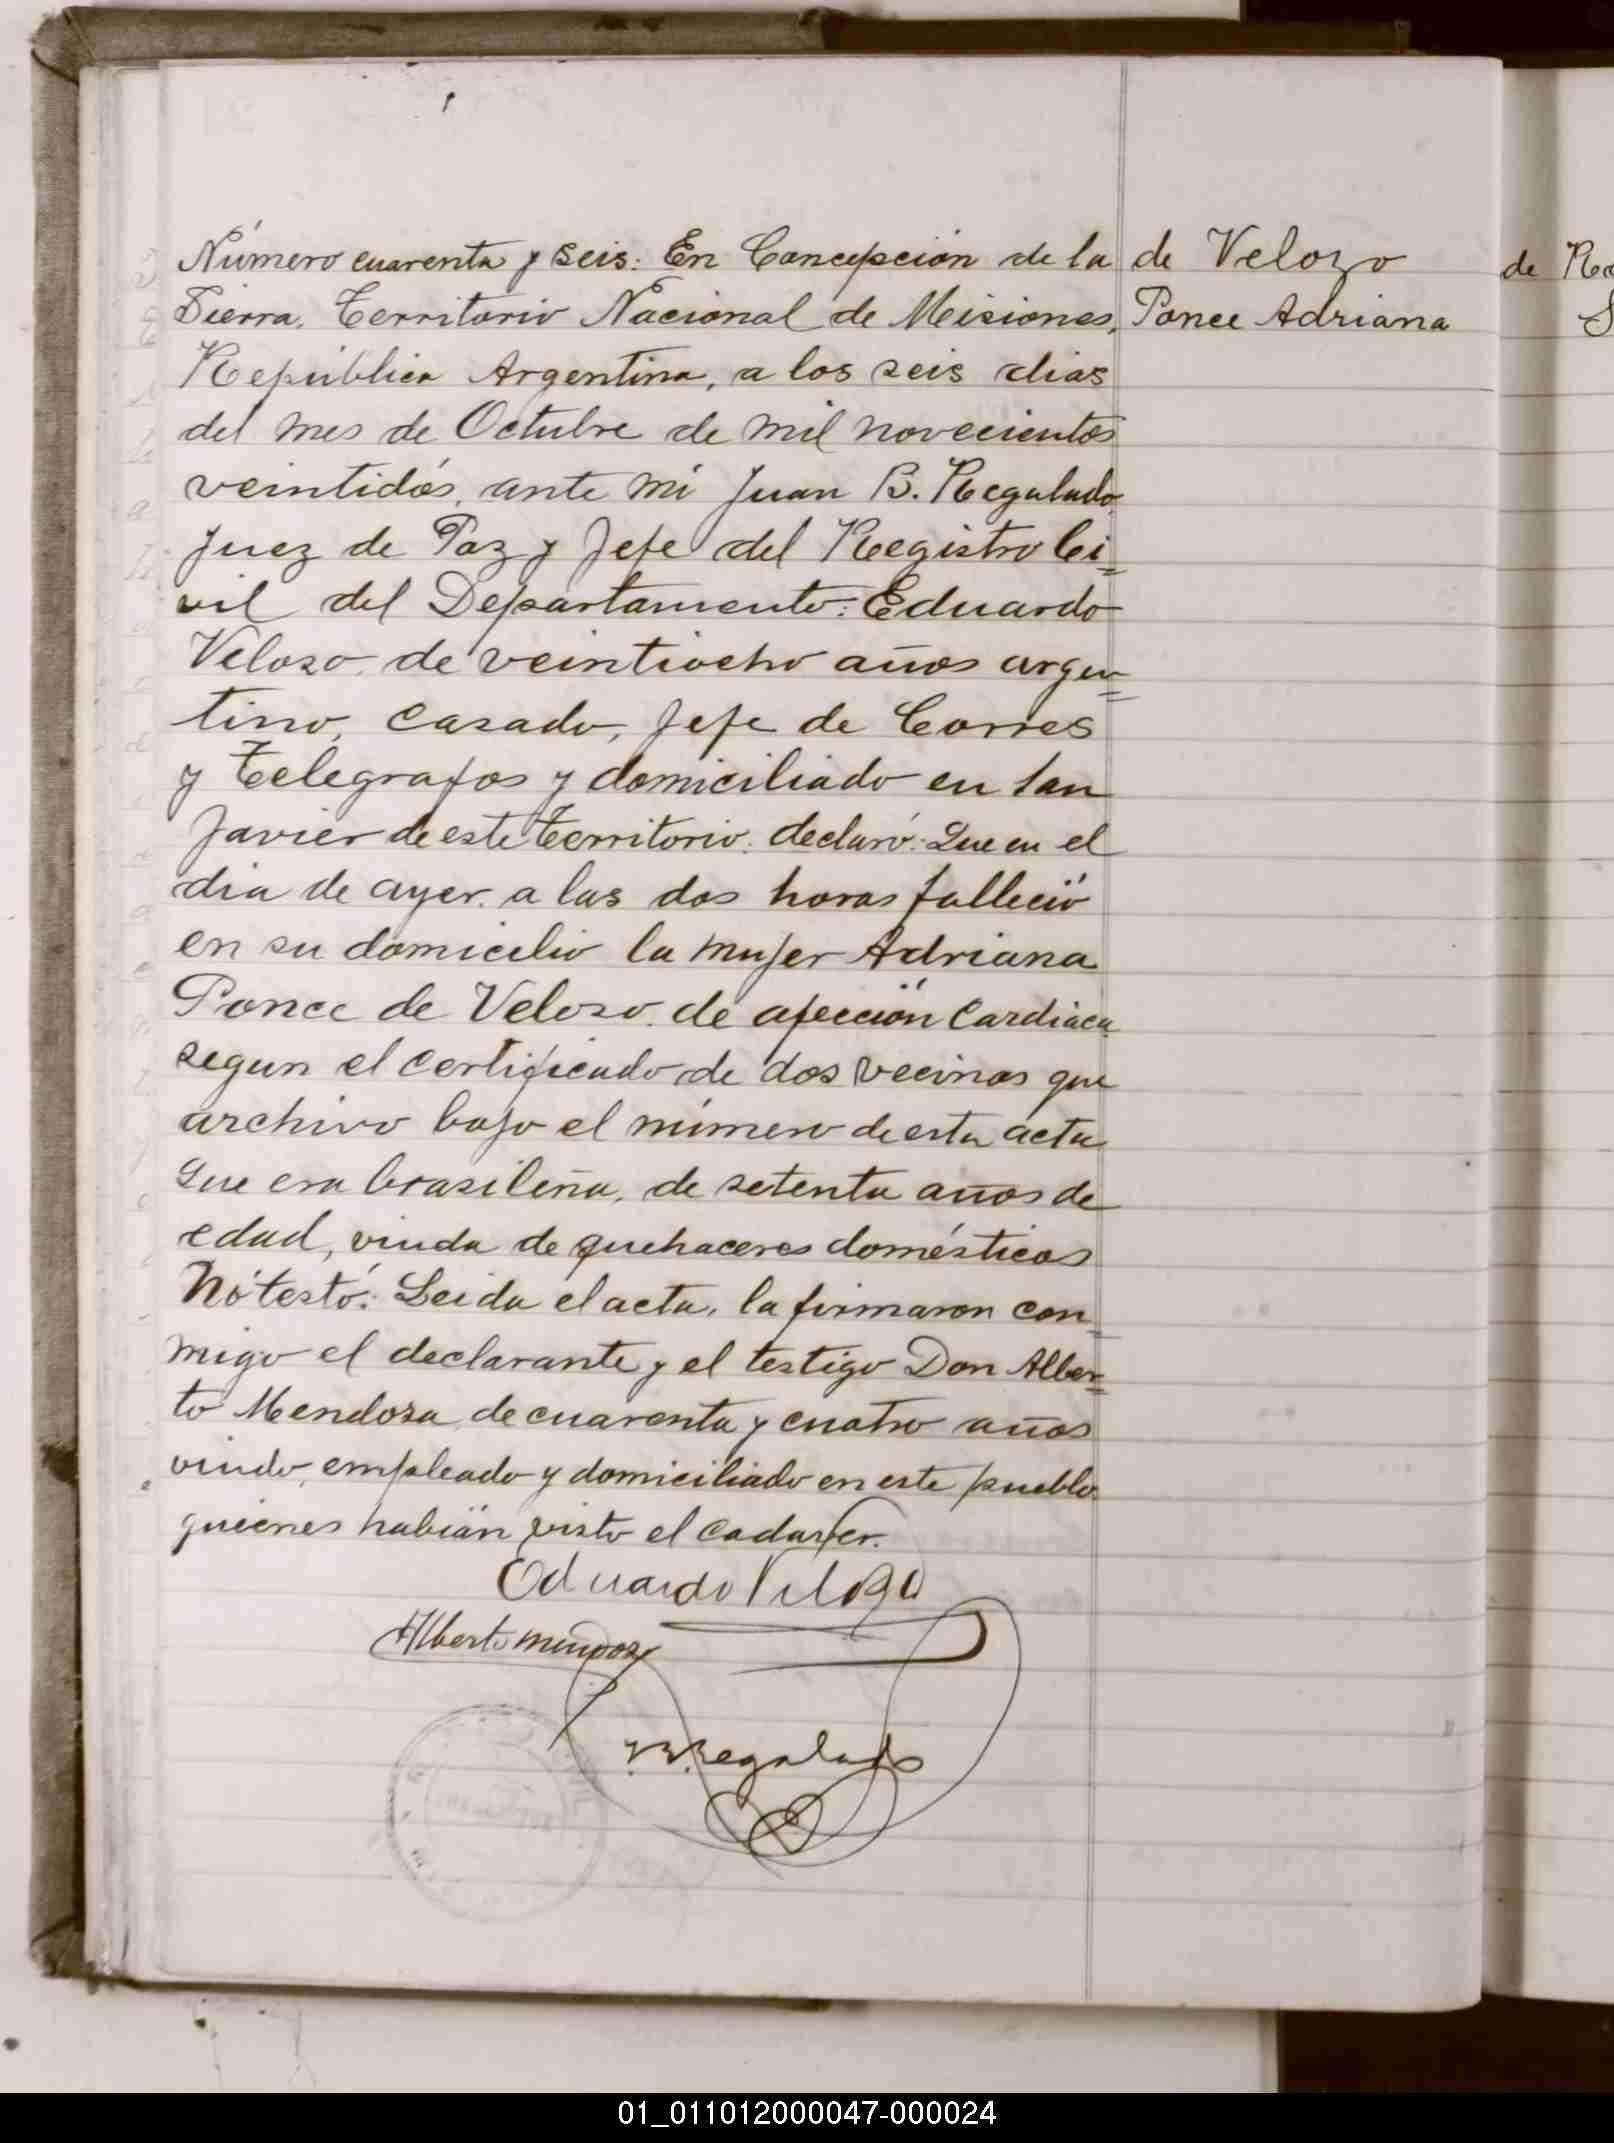 Número cuarenta y seis: En Concepción de la
Sierra, Territorio Nacional de Misiones,
República Argentina, a los seis dias
del mes de Octubre de mil novecientos
veintidós, ante mí Juan B. Regalado,
Juez de Paz y Jefe del Registro Ci=
vil del Departamento: Eduardo
Velozo, de veintiocho años argen=
tino, casado, Jefe de Correos
y Telegrafos y domiciliado en San
Javier de este Territorio, declaró: Que en el
dia de ayer, a las dos horas falleció
en su domicilio la mujer Adriana
Ponce de Velozo, de afección Cardiaca
segun el certificado de dos vecinos que
archivo bajo el número de esta acta
Que era brasileña, de setenta años de
edad, viuda de quehaceres domésticos
No testó: Leida el acta, la firmaron con=
migo el declarante y el testigo Don Alber=
to Mendoza de cuarenta y cuatro años
viudo, empleado y domiciliado en este pueblo
quienes habián visto el cadaver.
Eduardo Velozo
Alberto Mendoza
J. B. Regalado
de Velozo
Ponce Adriana
de
01_011012000047-000024